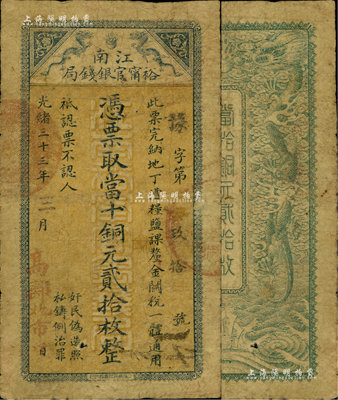 江南
裕甯官銀錢局
字第 玖拾 號
此票完納地丁漕糧鹽課釐金關稅一體通用
憑票取當十銅元貳拾枚整
祇認票不認人
光緒三十三年 月 日
奸民偽造照
私鑄例治罪
當拾銅元貳拾枚
上海陽明拍賣
上海陽明拍賣
上海陽明拍賣